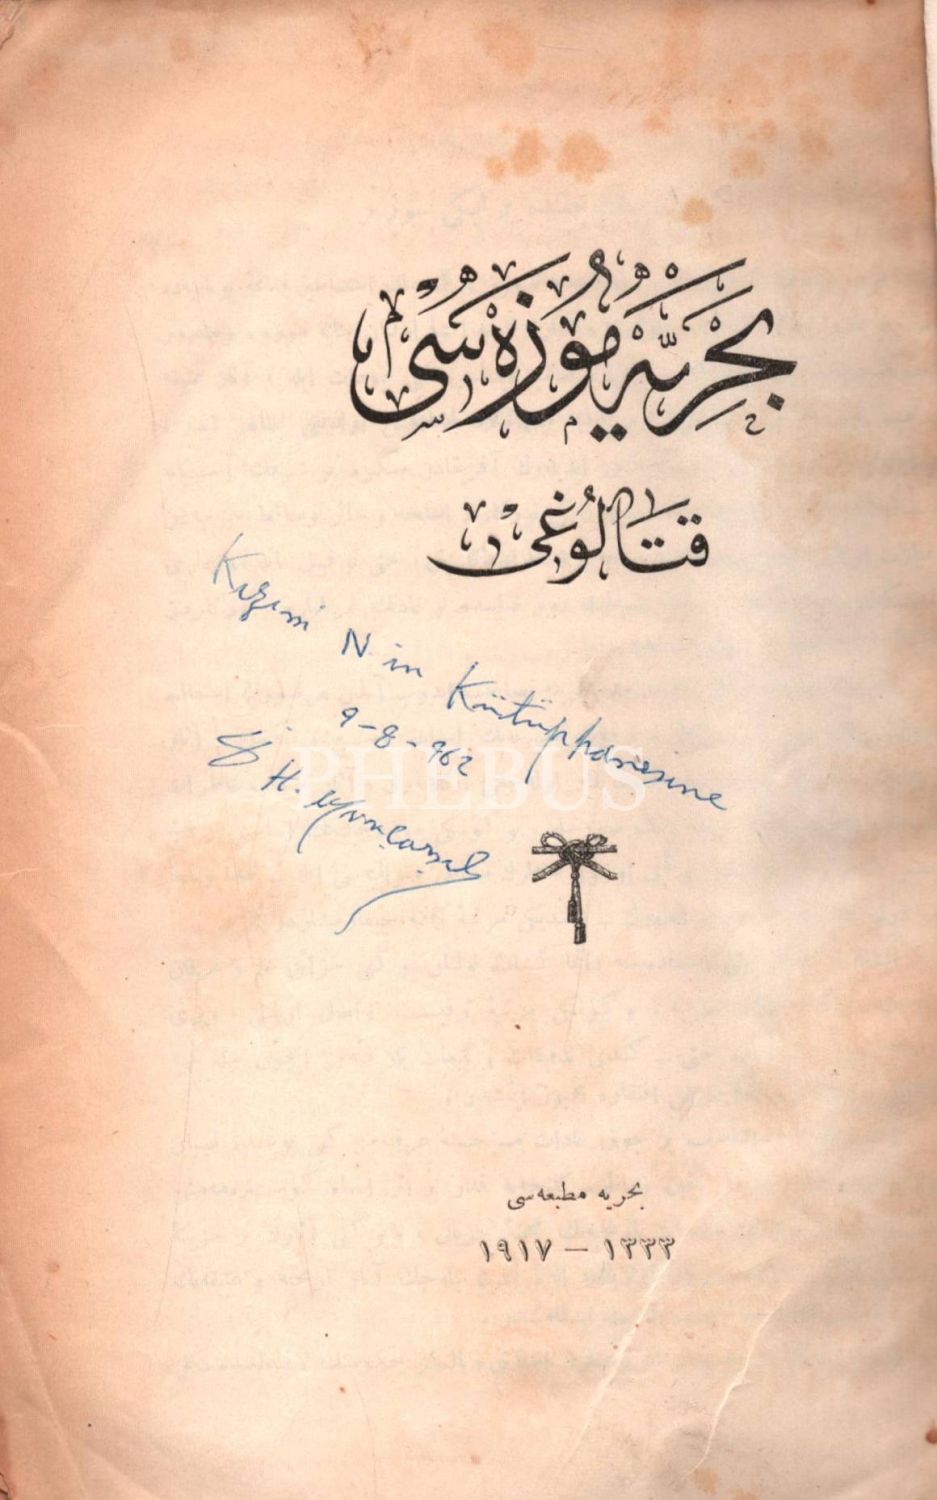 بحریه موزه سی
قتالوغی
Kızım N. in Kütüphanesine
9-8-962
H.
PHEBUS
بحریه مطبعه‌سی
١٣٣٣ — ١٩١٧